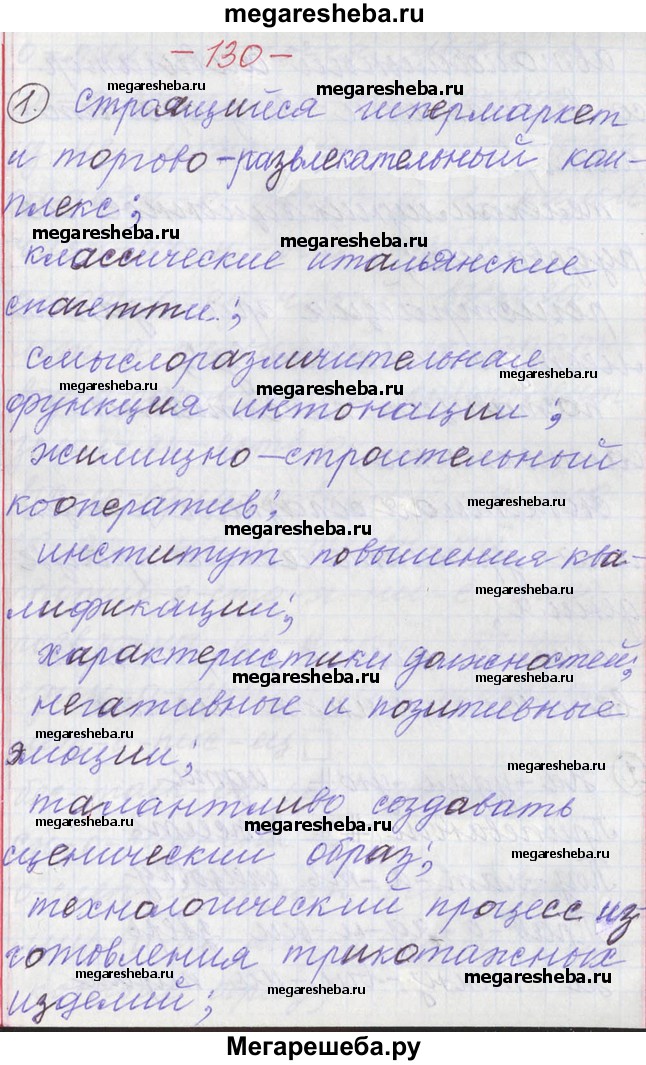 megaresheba.ru
- 130 -
megaresheba.ru megaresheba.ru
1. Строящийся гипермаркет
megaresheba.ru
и торгово-развлекательный ком-
плекс;
megaresheba.ru megaresheba.ru
классические итальянские
спагетти;
смыслоразличительная
megaresheba.ru megaresheba.ru megaresheba.ru
функция интонации;
жилищно-строительный
кооператив;
megaresheba.ru
институт повышения ква-
megaresheba.ru
лификации;
характеристики должностей;
megaresheba.ru megaresheba.ru
негативные и позитивные
эмоции;
талантливо создавать
megaresheba.ru megaresheba.ru
сценический образ;
megaresheba.ru
технологический процесс из-
готовления трикотажных
megaresheba.ru megaresheba.ru
изделий;
megaresheba.ru megaresheba.ru
Мегарешеба.ру